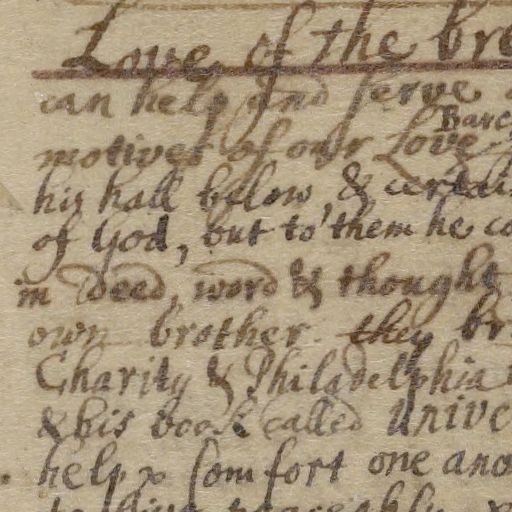 Love of the bre
can help and serve
Barc
motives of our Love
his hall below, & certai
of God, but to them he co
in Deed, word & thought
own brother. they br
Charity & Philadelphia
& his book called Unive
help & comfort one ano